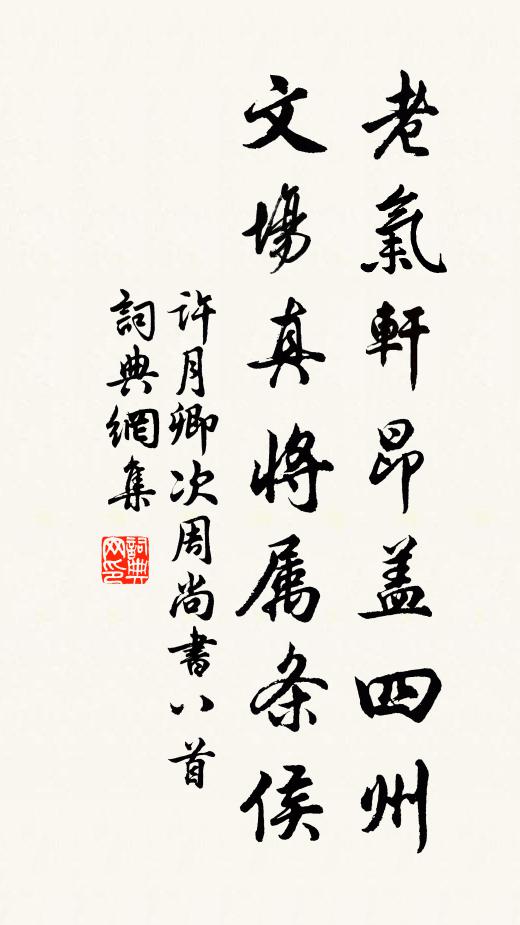 老氣軒昂蓋四州
文場真將属条侯
许月卿次周尚書八首
詞典網集
詞典網印